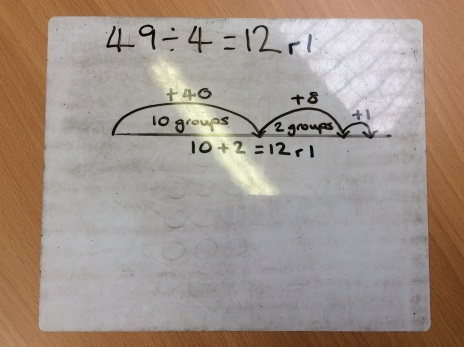 49÷4=12 r 1
+40 +8 +1
10 groups 2 groups
10+2=12 r 1